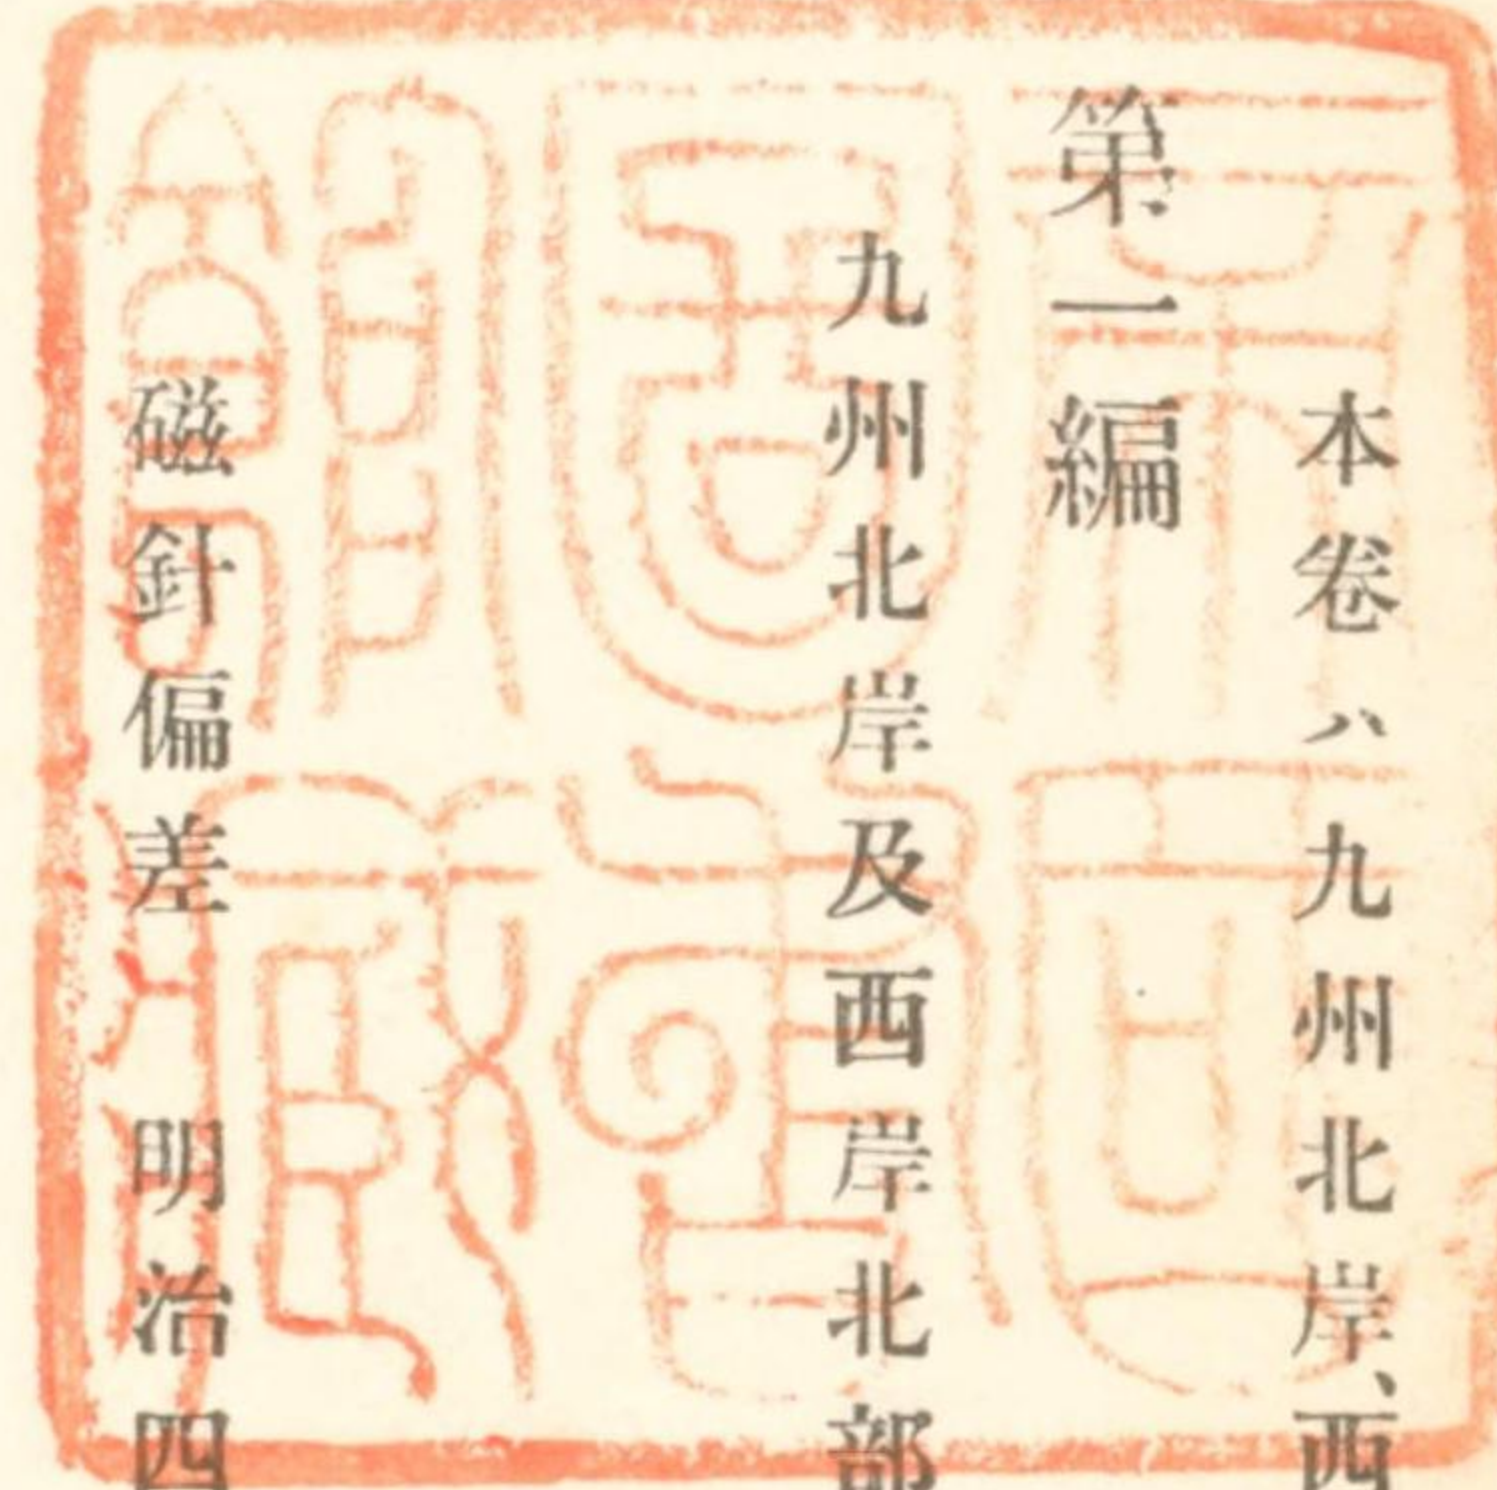 本卷ハ九州北岸、西
第一編
九州北岸及西岸北部
磁針偏差 明治四
帝國圖書館藏